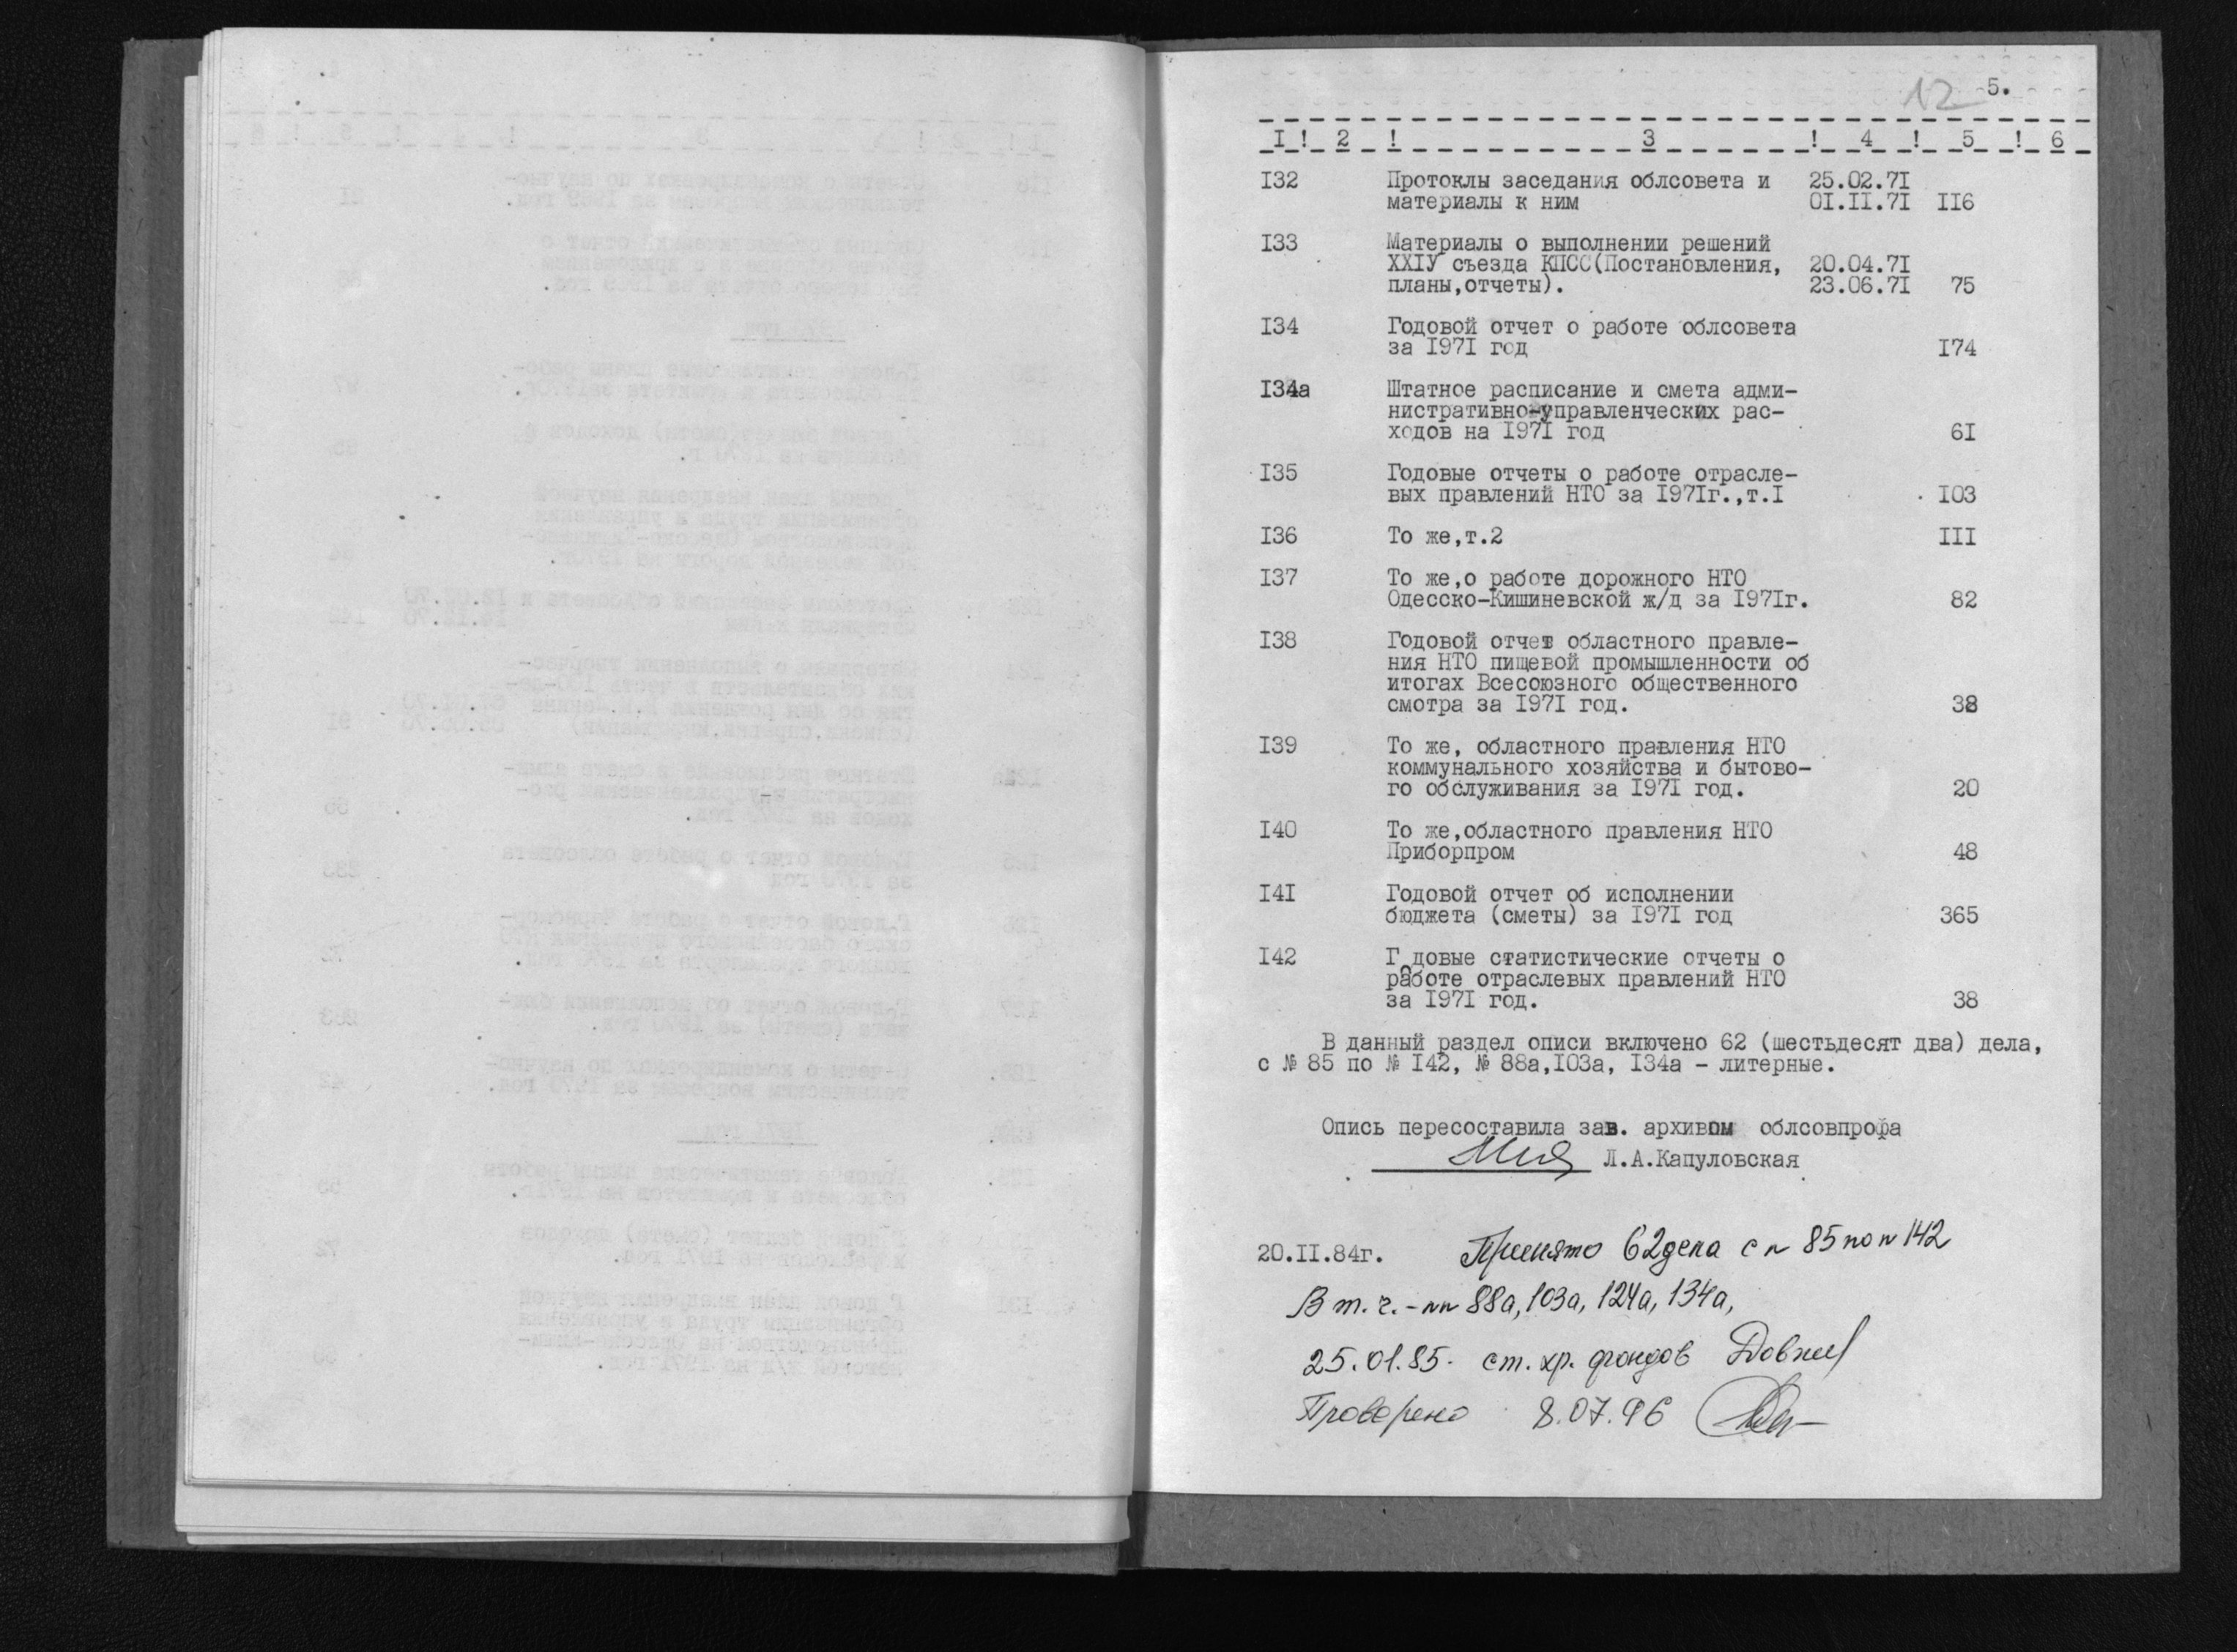 12 5.
I ! 2 ! 3 ! 4 ! 5 ! 6
I32 Протоклы заседания облсовета и 25.02.7I
материалы к ним 0I.II.7I II6
I33 Материалы о выполнении решений
XXIУ съезда КПСС(Постановления, 20.04.7I
планы,отчеты). 23.06.7I 75
I34 Годовой отчет о работе облсовета
за I97I год I74
I34а Штатное расписание и смета адми-
нистративно-управленческих рас-
ходов на I97I год 6I
I35 Годовые отчеты о работе отрасле-
вых правлений НТО за I97Iг.,т.I I03
I36 То же,т.2 III
I37 То же,о работе дорожного НТО
Одесско-Кишиневской ж/д за I97Iг. 82
I38 Годовой отчет областного правле-
ния НТО пищевой промышленности об
итогах Всесоюзного общественного
смотра за I97I год. 38
I39 То же, областного правления НТО
коммунального хозяйства и бытово-
го обслуживания за I97I год. 20
I40 То же,областного правления НТО
Приборпром 48
I4I Годовой отчет об исполнении
бюджета (сметы) за I97I год 365
I42 Годовые статистические отчеты о
работе отраслевых правлений НТО
за I97I год. 38
В данный раздел описи включено 62 (шестьдесят два) дела,
с № 85 по № I42, № 88а,I03а, I34а - литерные.
Опись пересоставила зав. архивом облсовпрофа
Л.А.Капуловская
20.II.84г. Принято 62 дела с n 85 по n 142
В т. ч. - nn 88а, 103а, 124а, 134а,
25.01.85. ст. хр. фондов
Проверено 8.07.96